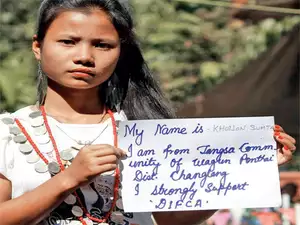 My Name is - KHORJON SUMTA
I am from Tangsa Comm
unity of Wagun Ponthai
Dist. Changlang
I strongly Support
DIFCA.